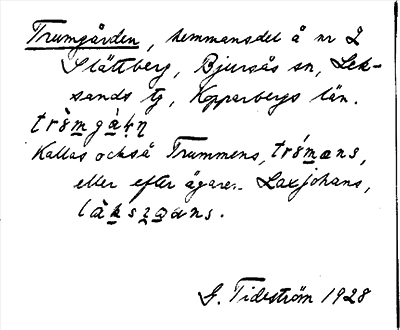 Trumgården, hemmansdel å nr 2
Slättberg, Bjursås sn, Lek-
sands tg, Kopparbergs län.
Kallas också Trummens,
eller efter ägaren Laxjohans,
G. Tideström 1928